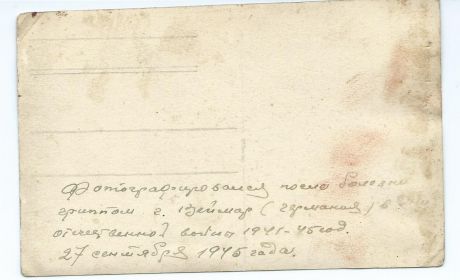 Фотографировался после болезни
гриппом г. Веймар (Германия) в
отечественной войны 1941-45 год.
27 сентября 1945 года.